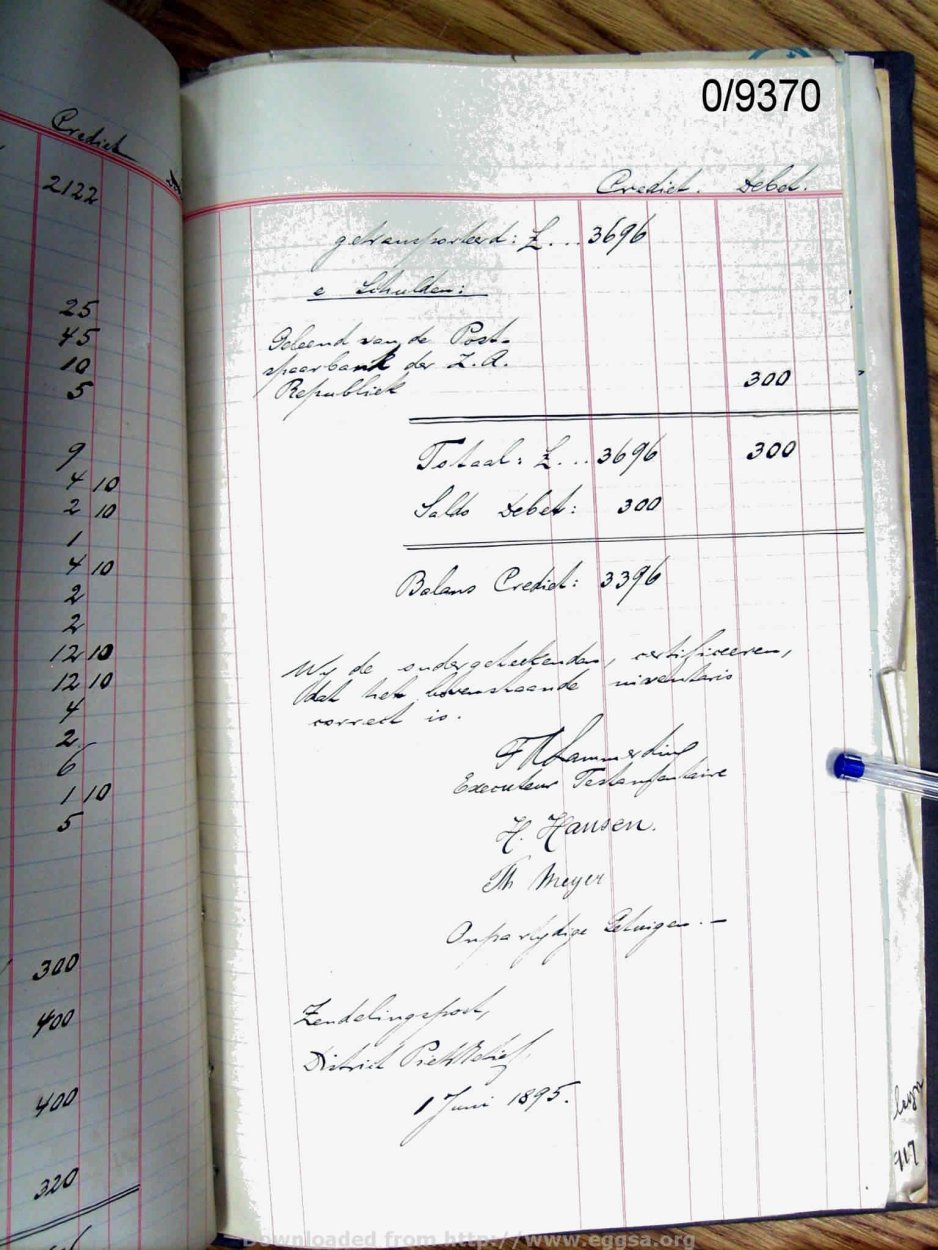 Crediet
2122
25
45
10
5
9
4 10
2 10
1
4 10
2
2
12 10
12 10
4
2
6
1 10
5
300
400
400
320
0/9370
Crediet. Debet.
getransporteerd: £... 3696
e Schulden:
Geleend van de Post-
spaarbank der Z.A.
Republiek 300
Totaal: £... 3696 300
Saldo Debet: 300
Balans Crediet: 3396
Wij de ondergeteekenden, certificeeren,
dat het bovenstaande inventaris
correct is.
Lammerding
Executeur Testamentaire
H. Hansen.
Th Meyer
Onpartijdige Getuigen.—
Zendelingspost,
District Piet Retief,
1 Juni 1895.
117
Downloaded from http://www.eggsa.org